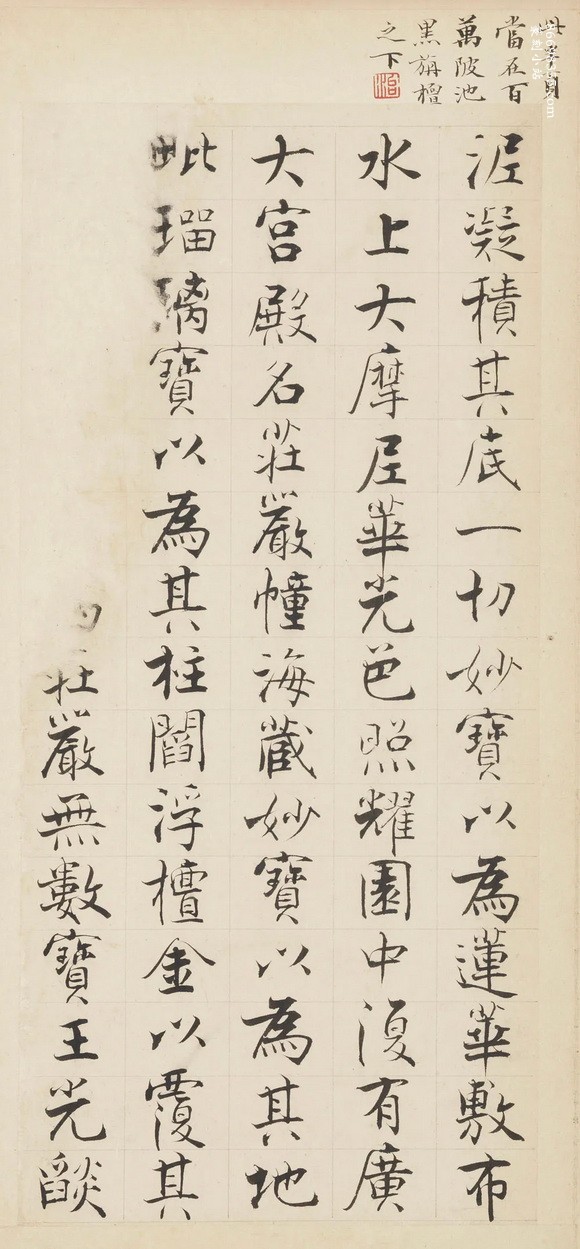 此頁
當在百
萬陂池
黑旃檀
之下
泥凝積其底一切妙寶以為蓮華敷布
水上大摩尼華光色照耀園中復有廣
大宮殿名莊嚴幢海藏妙寶以為其地
毗瑠璃寶以為其柱閻浮檀金以覆其
莊嚴無數寶王光燄